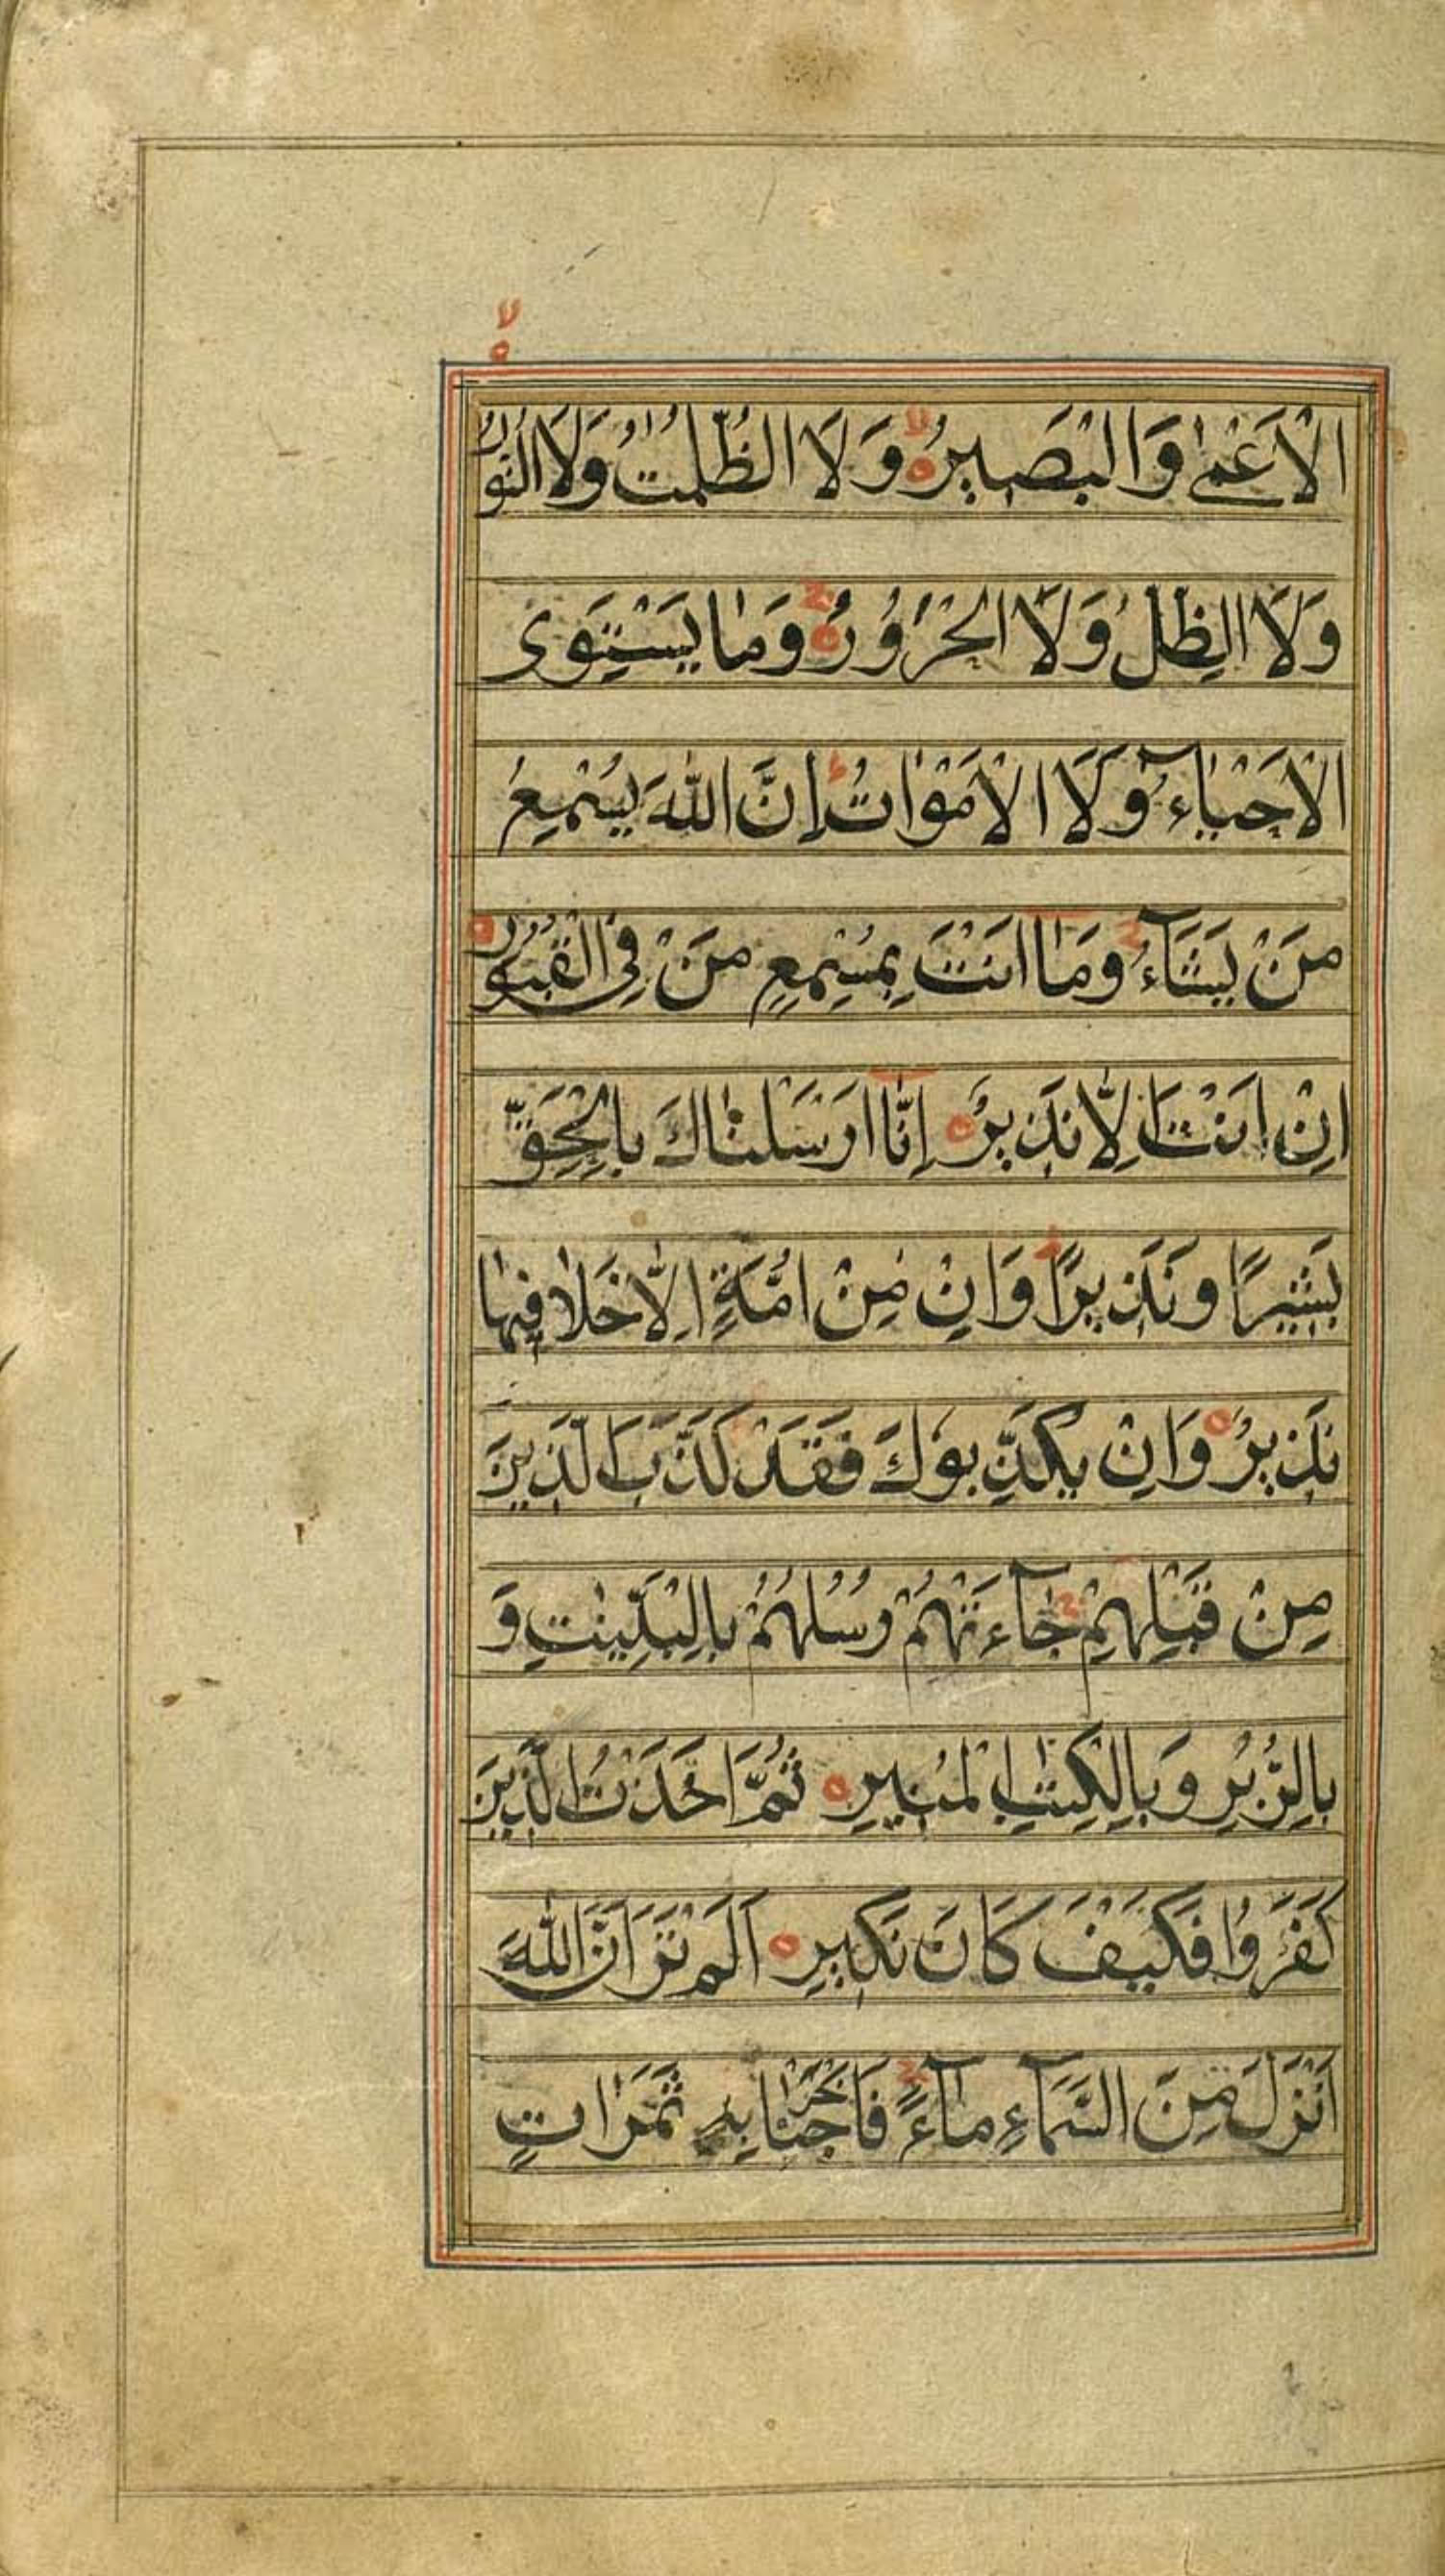 الْاَعْمٰى وَالْبَصِيْرُ ۙ وَلَا الظُّلُمٰتُ وَلَا النُّوْرُ ۙ
وَلَا الظِّلُّ وَلَا الْحَرُوْرُ ۚ وَمَا يَسْتَوِى
الْاَحْيَآءُ وَلَا الْاَمْوَاتُ ؕ اِنَّ اللّٰهَ يُسْمِعُ
مَنْ يَشَآءُ ۚ وَمَا اَنْتَ بِمُسْمِعٍ مَنْ فِى الْقُبُوْرِ
اِنْ اَنْتَ اِلَّا نَذِيْرٌ اِنَّا اَرْسَلْنَاكَ بِالْحَقِّ
بَشِيْرًا وَنَذِيْرًا ؕ وَاِنْ مِنْ اُمَّةٍ اِلَّا خَلَا فِيْهَا
نَذِيْرٌ وَاِنْ يُكَذِّبُوْكَ فَقَدْ كَذَّبَ الَّذِيْنَ
مِنْ قَبْلِهِمْ ۚ جَآءَتْهُمْ رُسُلُهُمْ بِالْبَيِّنٰتِ وَ
بِالزُّبُرِ وَبِالْكِتٰبِ الْمُنِيْرِ ثُمَّ اَخَذْتُ الَّذِيْنَ
كَفَرُوْا فَكَيْفَ كَانَ نَكِيْرِ اَلَمْ تَرَ اَنَّ اللّٰهَ
اَنْزَلَ مِنَ السَّمَآءِ مَآءً ۚ فَاَخْرَجْنَا بِهِ ثَمَرَاتٍ